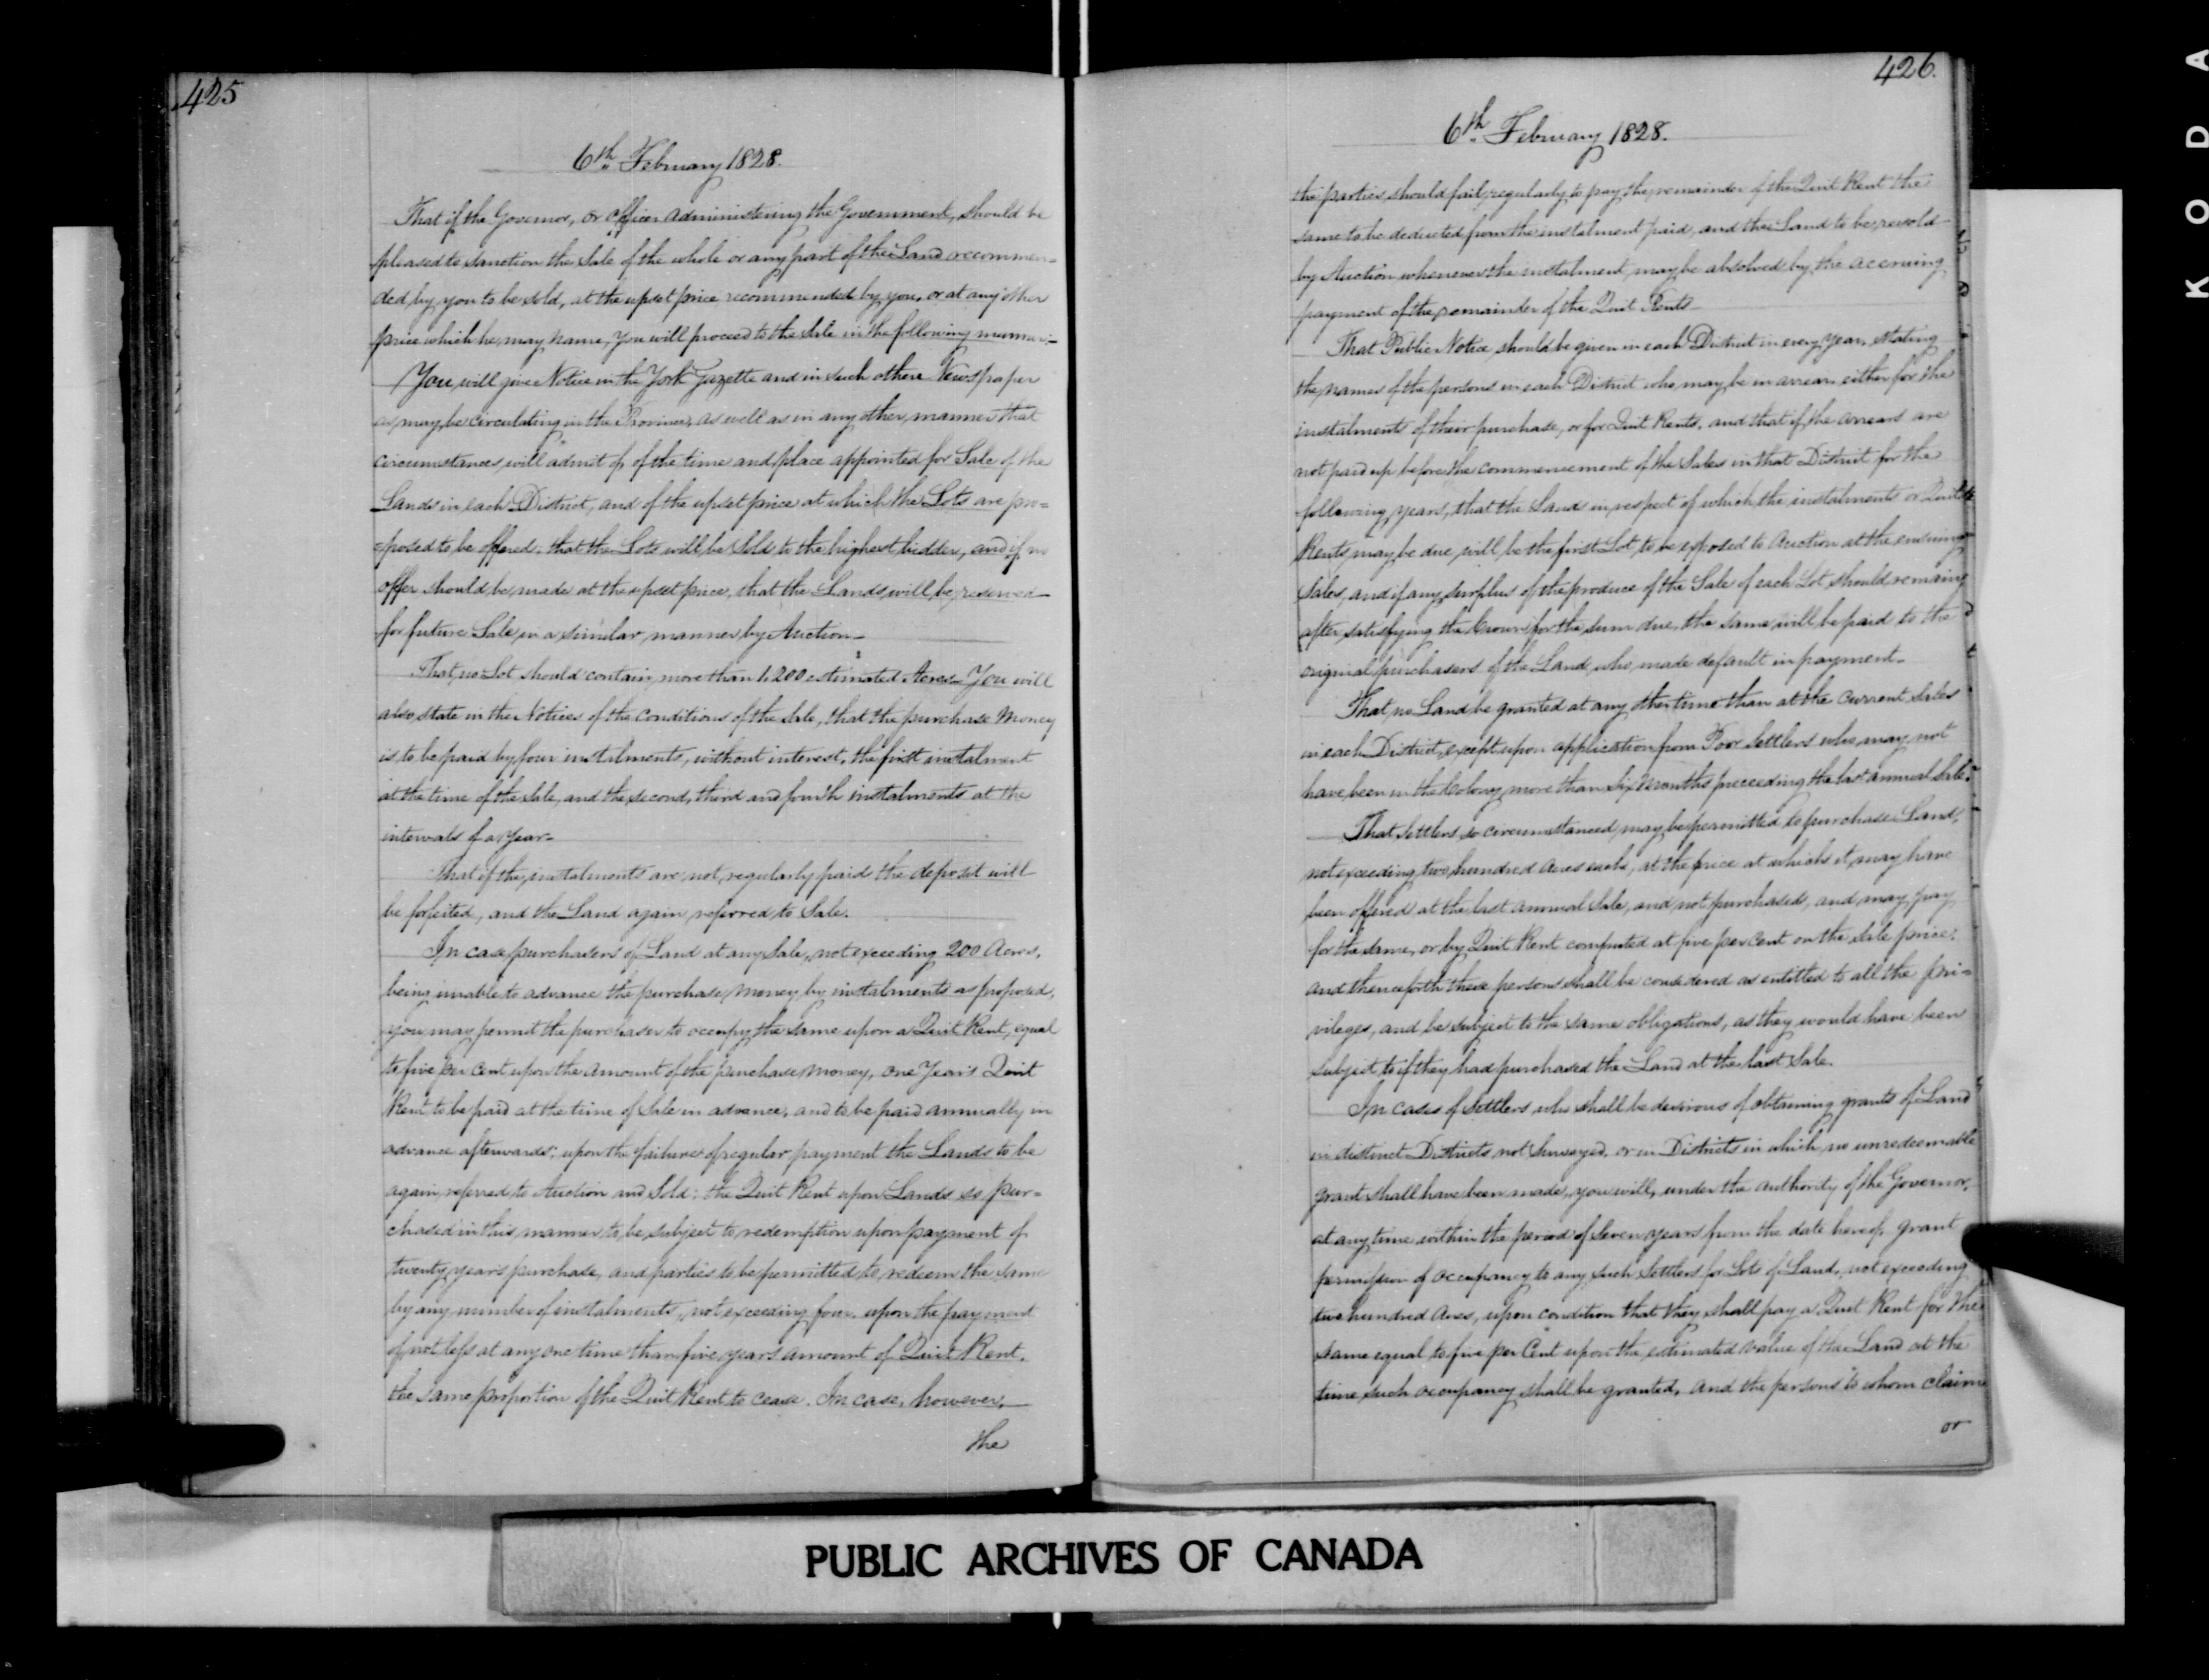 425
6th February 1828.
That if the Governor, or officer administering the Government, should be
pleased to sanction the Sale of the whole or any part of the Land recommen=
ded by you to be sold, at the upset price recommended by you, or at any other
price which he may name, you will proceed to the Sale in the following manner:—
You will give Notice in the York Gazette and in such other Newspaper
as may be circulating in the Province, as well as in any other manner that
circumstances will admit of, of the time and place appointed for Sale of the
Lands in each District, and of the upset price at which the Lots are pro=
=posed to be offered: that the Lots will be sold to the highest bidder, and if no
offer should be made at the upset price, that the Lands will be reserved
for future Sale in a similar manner by Auction—
That no Lot should contain more than 1,200 estimated Acres— You will
also state in the Notices of the conditions of the Sale, that the purchase Money
is to be paid by four instalments, without interest, the first instalment
at the time of the Sale, and the second, third and fourth instalments at the
intervals of a year—
That if the instalments are not regularly paid the deposit will
be forfeited, and the Land again referred to Sale.
In case purchasers of Land at any Sale, not exceeding 200 Acres,
being unable to advance the purchase Money by instalments as proposed,
you may permit the purchaser to occupy the same upon a Quit Rent, equal
to five per Cent upon the amount of the purchase Money, one Year's Quit
Rent to be paid at the time of Sale in advance, and to be paid annually in
advance afterwards; upon the failure of regular payment the Lands to be
again referred to Auction and Sold: the Quit Rent upon Lands so pur=
chased in this manner to be subject to redemption upon payment of
twenty years purchase, and parties to be permitted to redeem the same
by any number of instalments, not exceeding four, upon the payment
of not less at any one time than five years amount of Quit Rent.
the same proportion of the Quit Rent to cease. In case, however,
the
426.
6th February 1828.
the parties should fail regularly to pay the remainder of the Quit Rent the
same to be deducted from the instalment paid, and the Land to be resold
by Auction whenever the instalment may be absolved by the accruing
payment of the remainder of the Quit Rents—
That Public Notice should be given in each District in every year, stating
the names of the persons in each District who may be in arrear, either for the
instalments of their purchase, or for Quit Rents, and that if the arrears are
not paid up before the commencement of the Sales in that District for the
following years, that the Lands in respect of which the instalments or Quit
Rents may be due, will be the first Lot to be exposed to Auction at the ensuing
Sales, and if any surplus of the produce of the Sale of each Lot should remain
after satisfying the Crown for the sum due, the same will be paid to the
original purchasers of the Land, who made default in payment—
That no Land be granted at any other time than at the current Sales
in each District, except upon application from Poor Settlers who may not
have been in the Colony more than Six Months preceeding the last annual Sale.
That Settlers so circumstanced may be permitted to purchase Land,
not exceeding two hundred acres each, at the price at which it may have
been offered at the last annual Sale, and not purchased, and may pay
for the same, or by Quit Rent computed at five per Cent on the Sale price:
and thenceforth these persons shall be considered as entitled to all the pri=
vileges, and be subject to the same obligations, as they would have been
subject to if they had purchased the Land at the last Sale.
In cases of Settlers who shall be desirous of obtaining grants of Land
in distinct Districts not Surveyed, or in Districts in which no unredeemable
grant shall have been made, you will, under the authority of the Governor,
at any time within the period of Seven years from the date hereof, grant
permission of occupancy to any such Settlers for Lots of Land, not exceeding
two hundred Acres, upon condition that they shall pay a Quit Rent for the
same equal to five per Cent upon the estimated value of the Land at the
time such occupancy shall be granted, and the persons to whom claim
or
PUBLIC ARCHIVES OF CANADA
KODA